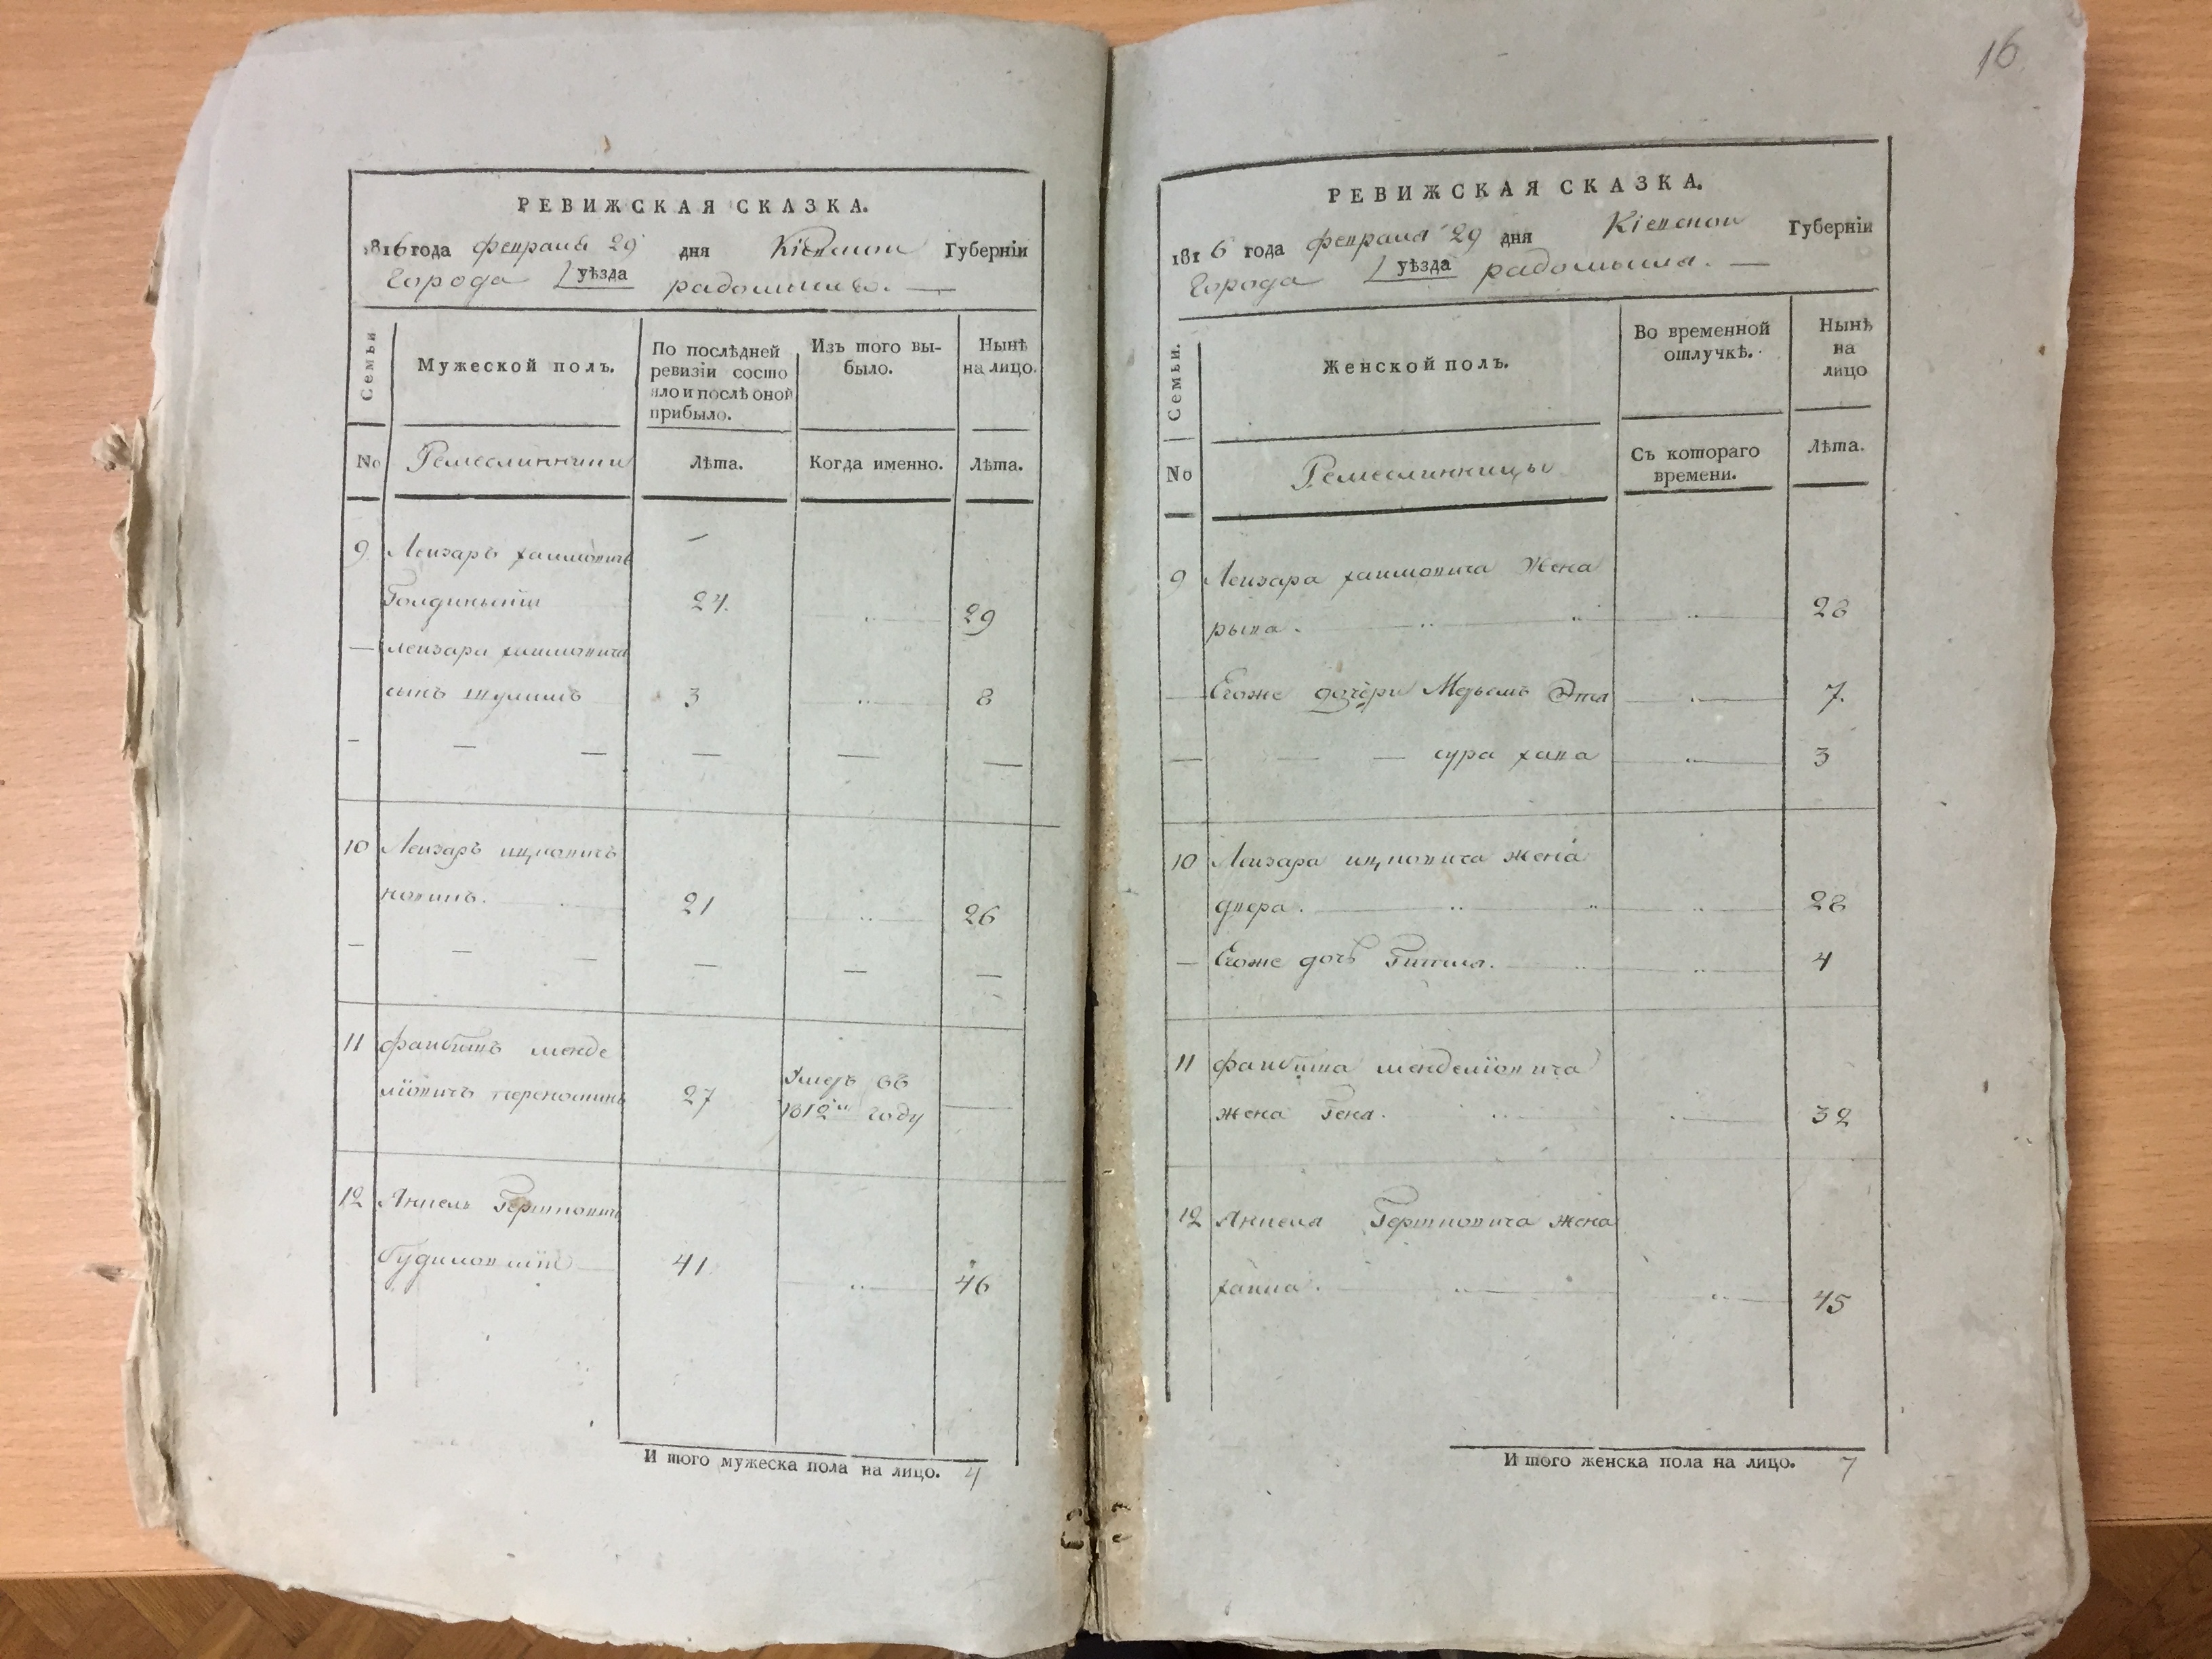 РЕВИЖСКАЯ СКАЗКА.
1816 года февраля 29 дня Кіевской Губерніи
Города уѣзда радомысля.
Семьи
Мужеской полъ.
По послѣдней ревизіи состо
яло и послѣ оной прибыло.
Изъ того вы-
было.
Нынѣ
на лицо.
No
Ремеслинники
Лѣта.
Когда именно.
Лѣта.
9 Леизаръ хаимовичъ
24. 29
— леизара хаимовича
сынъ шулимъ 3 8
10 Леизаръ ицковичъ
21 26
11 фаибишъ менде
ліовичъ 27 Умеръ въ
1812м году
12 Янкель Гершковичъ
41 46
И того мужеска пола на лицо. 4
16
РЕВИЖСКАЯ СКАЗКА.
1816 года февраля 29 дня Кіевской Губерніи
Города уѣзда радомысля.
Семьи.
Женской полъ.
Во временной
отлучкѣ.
Нынѣ
на
лицо
No
Ремеслинницы
Съ котораго
времени.
Лѣта.
9 Леизара хаимовича жена
рыва. 28
Егоже дочери Меръемъ Эта 7.
сура хава 3
10 Леизара ицковича жена
двера. 28
Егоже дочь Гитля. 4
11 фаибиша менделіовича
жена Гена. 32
12 Янкеля Гершковича жена
хаика. 45
И того женска пола на лицо. 7